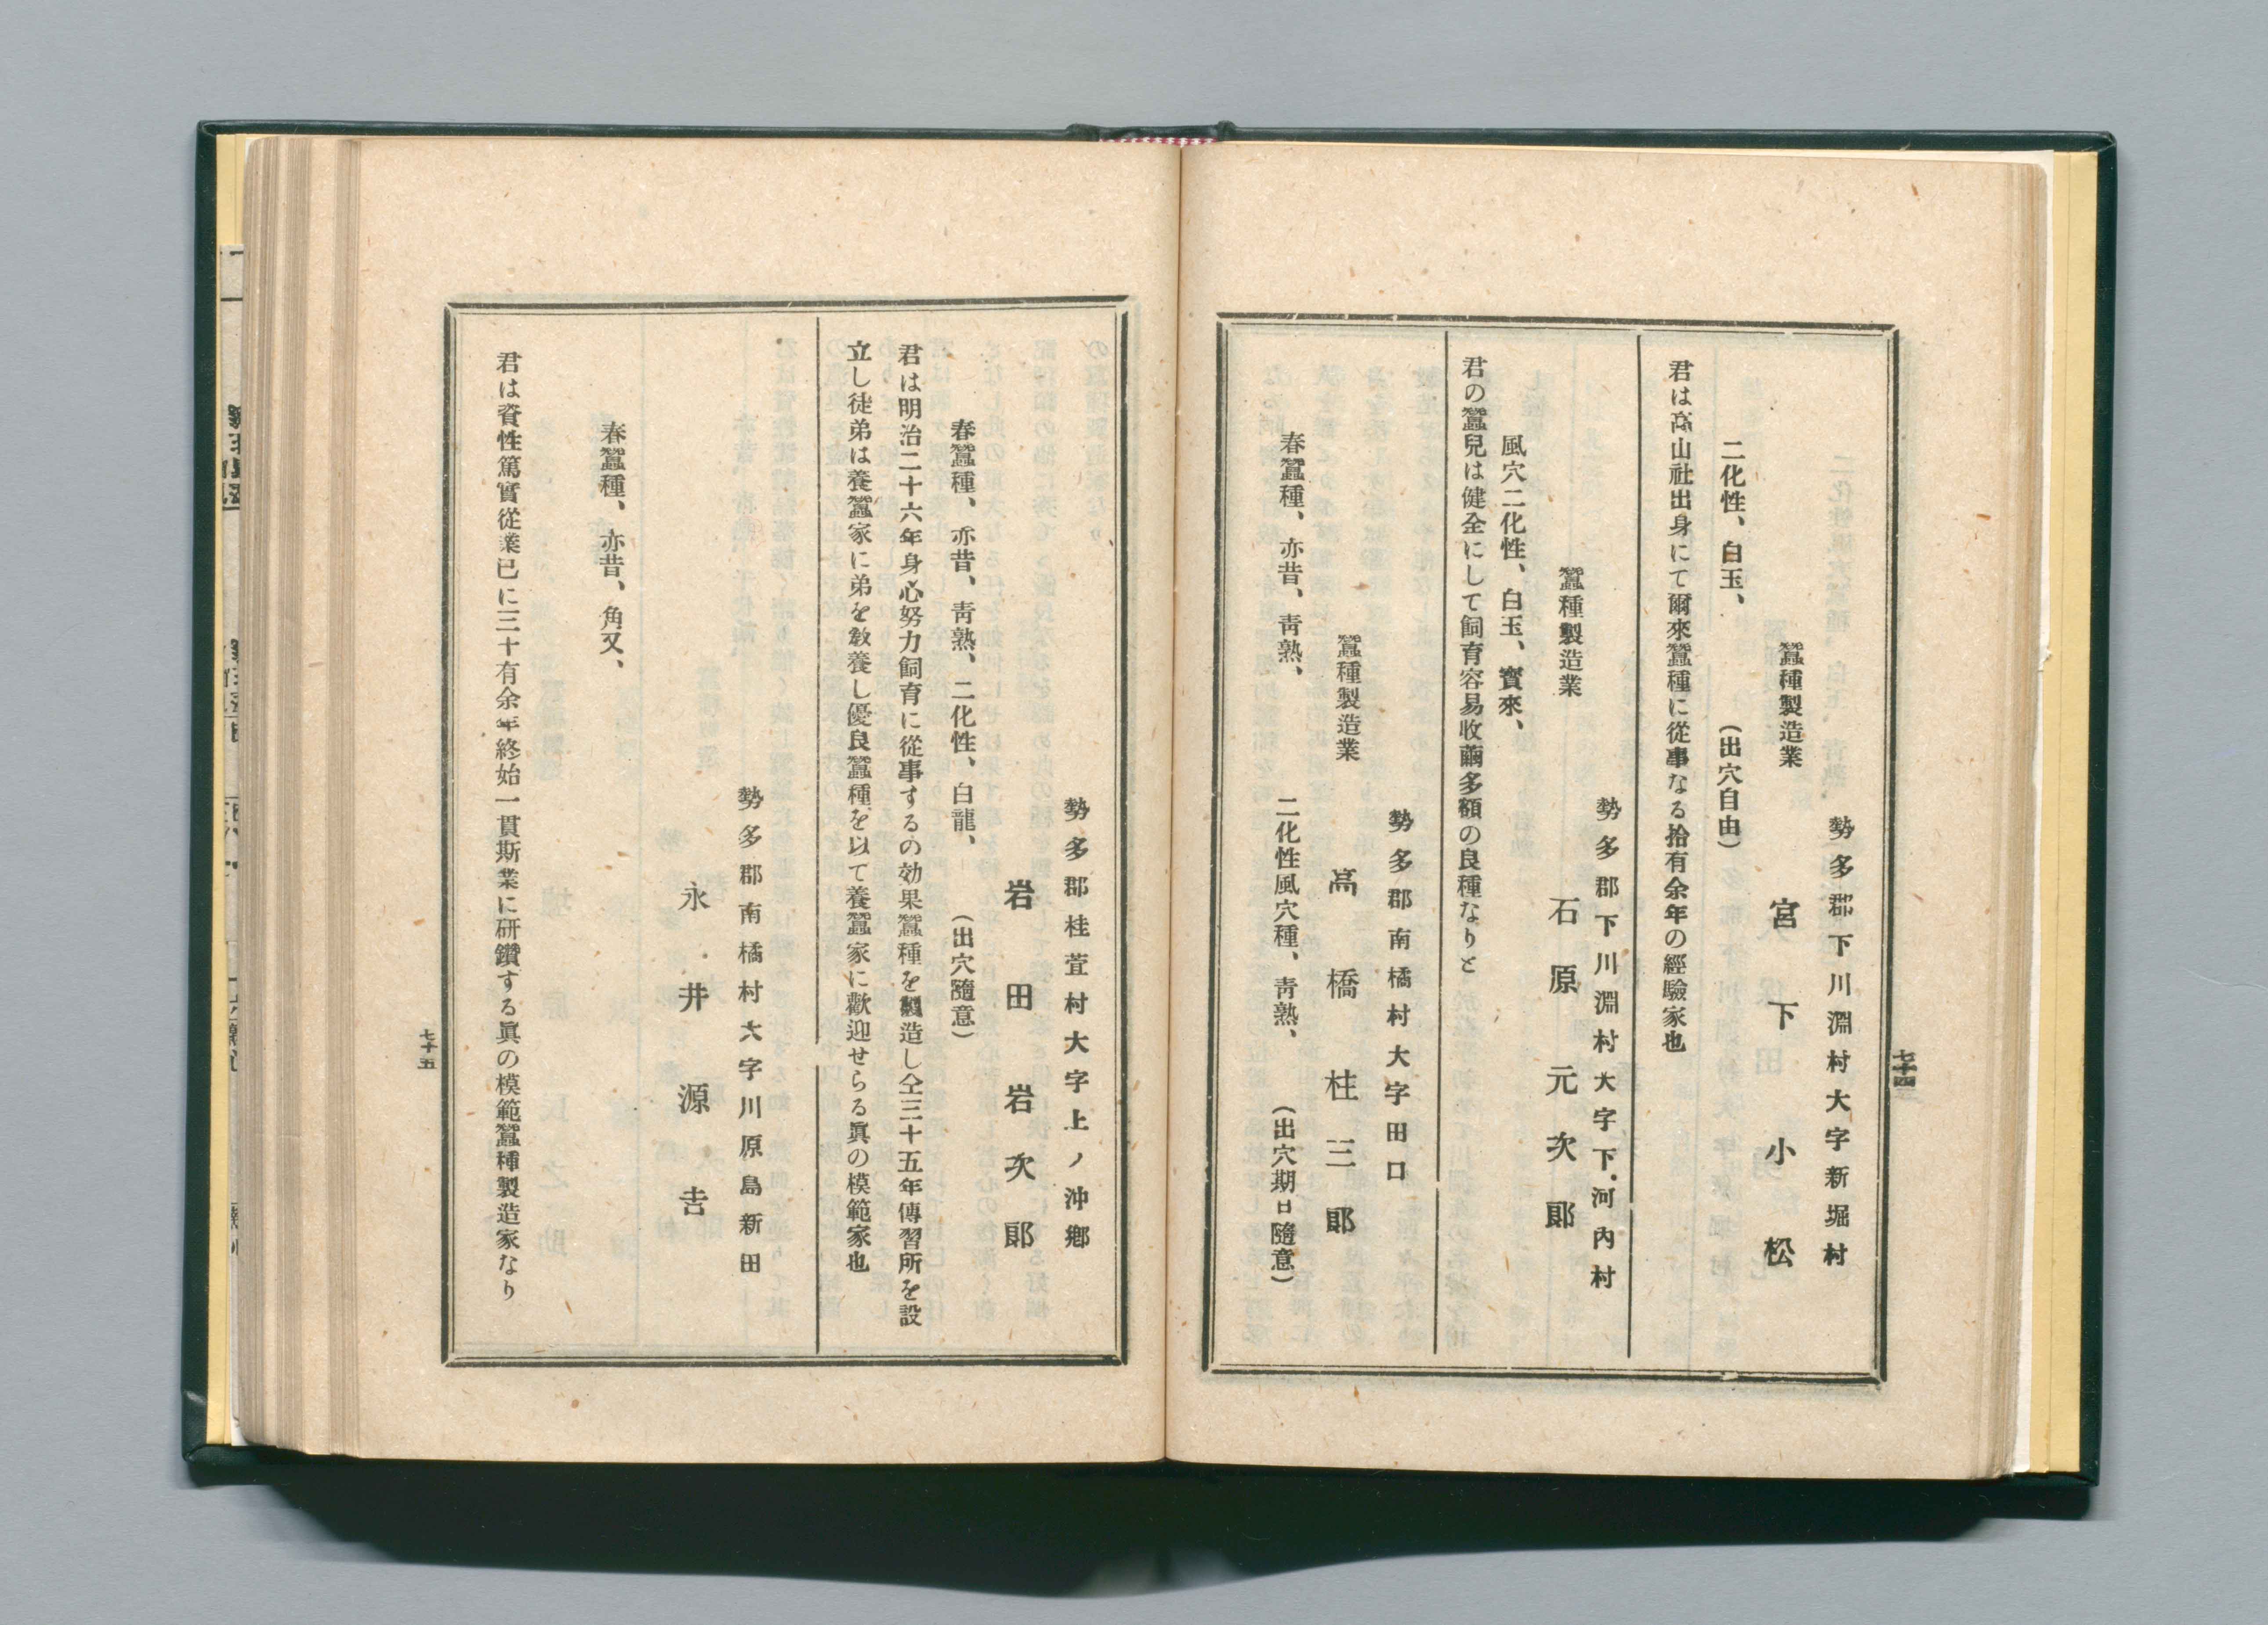 勢多郡下川淵村大字新堀村
蠶種製造業
宮下小松
二化性、白玉、
(出穴自由)
君は高山社出身にて爾來蠶種に從事なる拾有余年の經驗家也
勢多郡下川淵村大字下河內村
蠶種製造業
石原元次郎
風穴二化性、白玉、寶來、
君の蠶兒は健全にして飼育容易收繭多額の良種なりと
勢多郡南橘村大字田口
蠶種製造業
高橋桂三郎
春蠶種、亦昔、靑熟、
二化性風穴種、靑熟、
(出穴期日隨意)
七十四
勢多郡桂萱村大字上ノ沖鄕
岩田岩次郎
春蠶種、亦昔、靑熟、二化性、白龍、
(出穴隨意)
君は明治二十六年身心努力飼育に從事するの効果蠶種を製造し仝三十五年傳習所を設
立し徒弟は養蠶家に弟を敎養し優良蠶種を以て養蠶家に歡迎せらる眞の模範家也
勢多郡南橘村大字川原島新田
永井源吉
春蠶種、亦昔、角又、
君は資性篤實從業已に三十有余年終始一貫斯業に硏鑽する眞の模範蠶種製造家なり
七十五